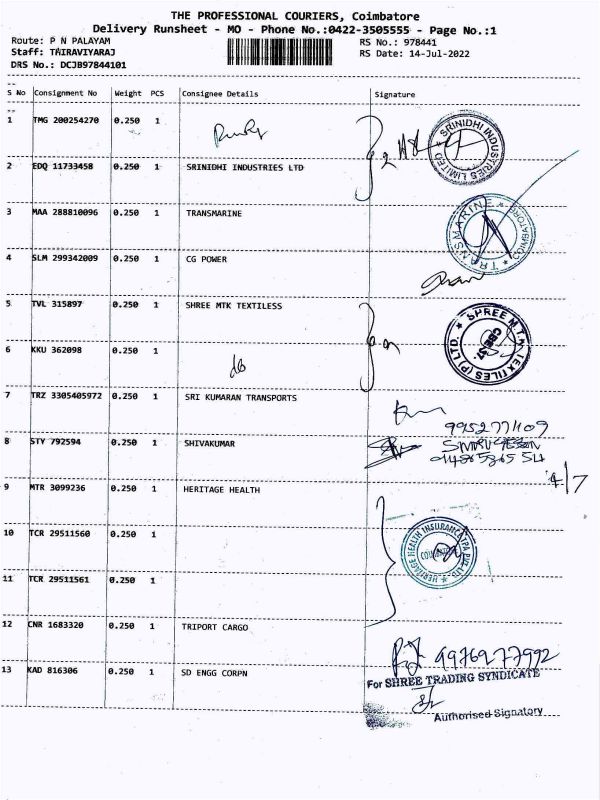 THE PROFESSIONAL COURIERS, Coimbatore
Delivery Runsheet - MO - Phone No.:0422-3505555 - Page No.:1
Route: P N PALAYAM
Staff: THIRAVIYARAJ
DRS No.: DCJB97844101
RS No.: 978441
RS Date: 14-Jul-2022
S No Consignment No Weight PCS Consignee Details Signature
1 TMG 200254270 0.250 1
SRINIDHI INDUSTRIES LIMITED
2 EDQ 11733458 0.250 1 SRINIDHI INDUSTRIES LTD
3 MAA 288810096 0.250 1 TRANSMARINE
TRANSMARINE COIMBATORE
4 SLM 299342009 0.250 1 CG POWER
5 TVL 315897 0.250 1 SHREE MTK TEXTILESS
SHREE M.T.K TEXTILES (P) LTD.
CBE-37.
6 KKU 362098 0.250 1
do
7 TRZ 3305405972 0.250 1 SRI KUMARAN TRANSPORTS
8 STY 792594 0.250 1 SHIVAKUMAR
9 MTR 3099236 0.250 1 HERITAGE HEALTH
10 TCR 29511560 0.250 1
HERITAGE HEALTH INSURANCE TPA PVT. LTD.
11 TCR 29511561 0.250 1
12 CNR 1683320 0.250 1 TRIPORT CARGO
9976977992
13 KAD 816306 0.250 1 SD ENGG CORPN
For SHREE TRADING SYNDICATE
Authorised Signatory